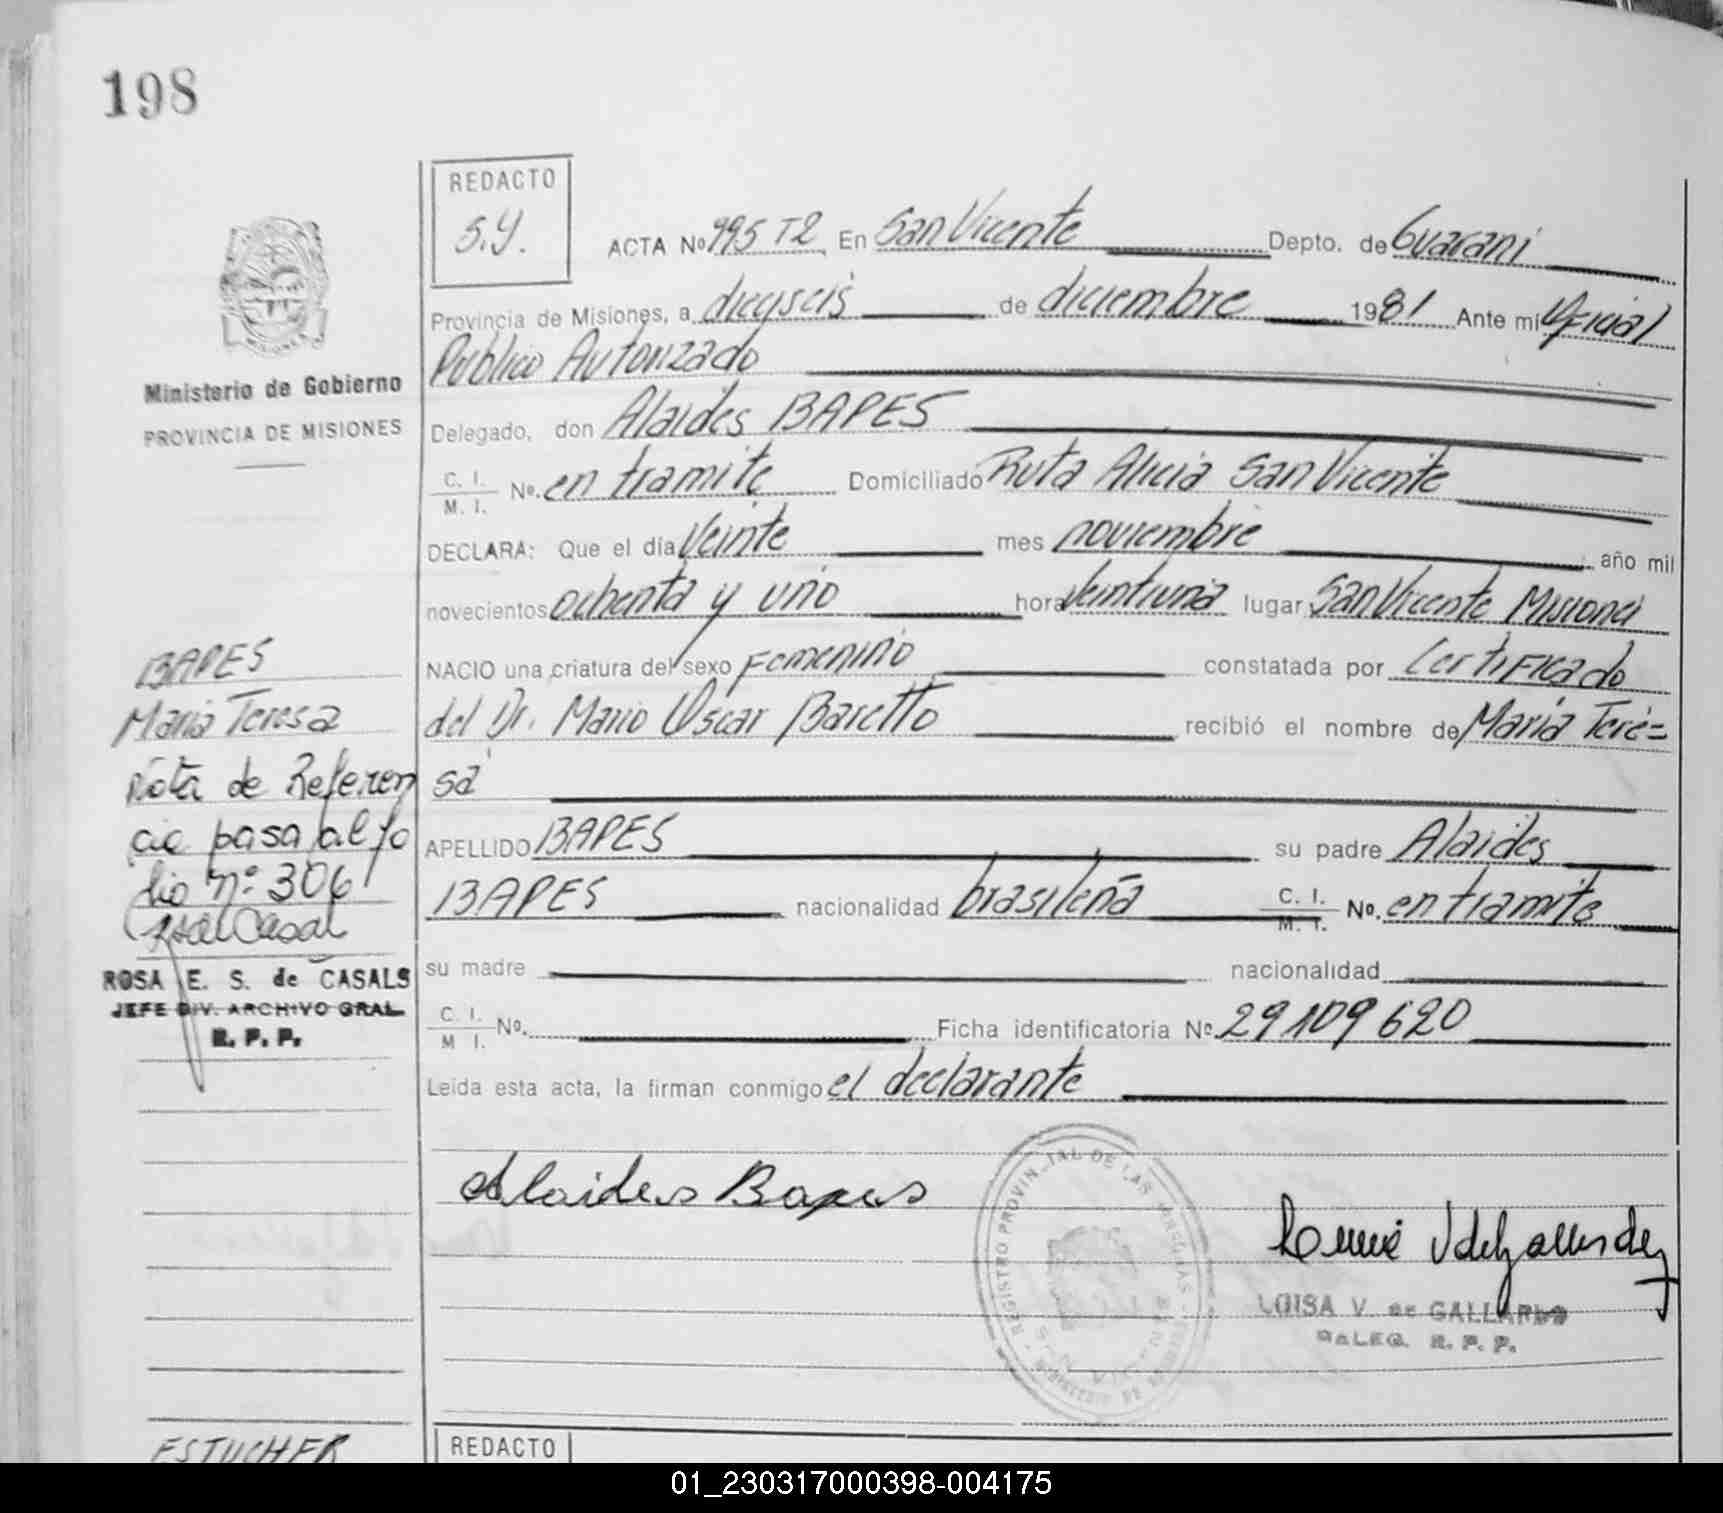 198
REDACTO
S.Y.
ACTA No 995 T2 En San Vicente Depto. de Guarani
Provincia de Misiones, a dieyseis de diciembre 1981 Ante mi Oficial
Publico Autorizado
Ministerio de Gobierno
PROVINCIA DE MISIONES
Delegado, don Alaides BAPES
C. I. M. I. No. en tramite Domiciliado Ruta Alicia San Vicente
DECLARA: Que el día Veinte mes noviembre año mil
novecientos ochenta y uno hora Veintiuna lugar San Vicente Misiones
BAPES
NACIO una criatura del sexo Femenino constatada por Certificado
Maria Teresa
del Dr. Mario Oscar Baretto recibió el nombre de Maria Tere=
Nota de Referen
sa
cia pasa al fo
APELLIDO BAPES su padre Alaides
lio nº 306
BAPES nacionalidad brasileña C. I. M. I. No. en tramite
ROSA E. S. de CASALS
JEFE DIV. ARCHIVO GRAL.
R. P. P.
su madre nacionalidad
C. I. M I. No. Ficha identificatoria No. 29109620
Leida esta acta, la firman conmigo el declarante
Alaides Bapes
REGISTRO PROVINCIAL DE LAS PERSONAS
LUISA V. de GALLARDO
DELEG. R. P. P.
ESTUCHER
REDACTO
01_230317000398-004175